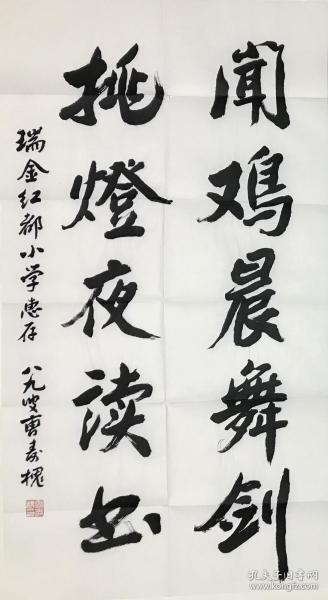 闻鸡晨舞剑
挑燈夜读书
瑞金红都小学惠存
八九叟曹寿槐
孔夫子旧书网